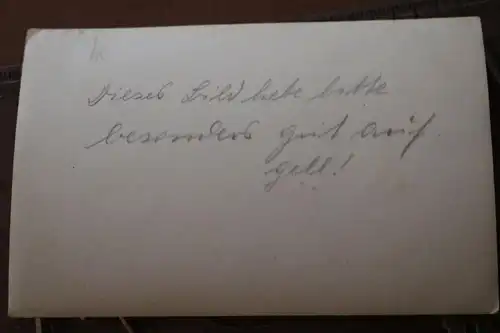 Dieses Bild hebe bitte
besonders gut auf.
gell!